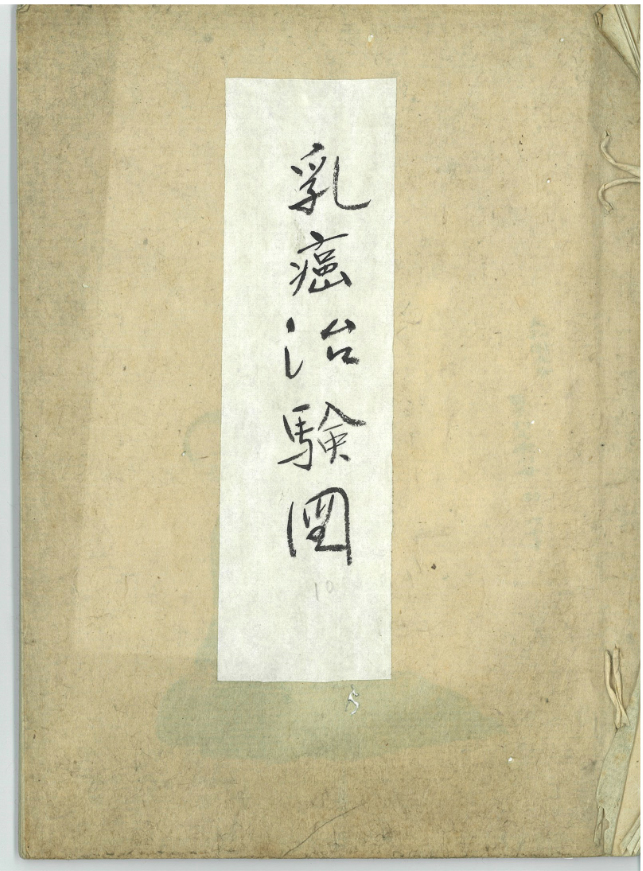 乳癌治験図
10